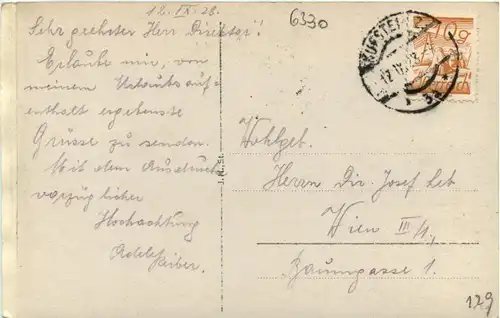 12. IX. 28.
6330
Sehr geehrter Herr Direktor!
Erlaube mir, von
meinem Urlaubsauf-
enthalt ergebenste
Grüsse zu senden.
Mit dem Ausdruck
vorzüglicher
Hochachtung
Adele
J. N. St.
10 g
Wohlgeb.
Herrn Dir. Josef
Wien III/1,
Baumgasse 1.
129